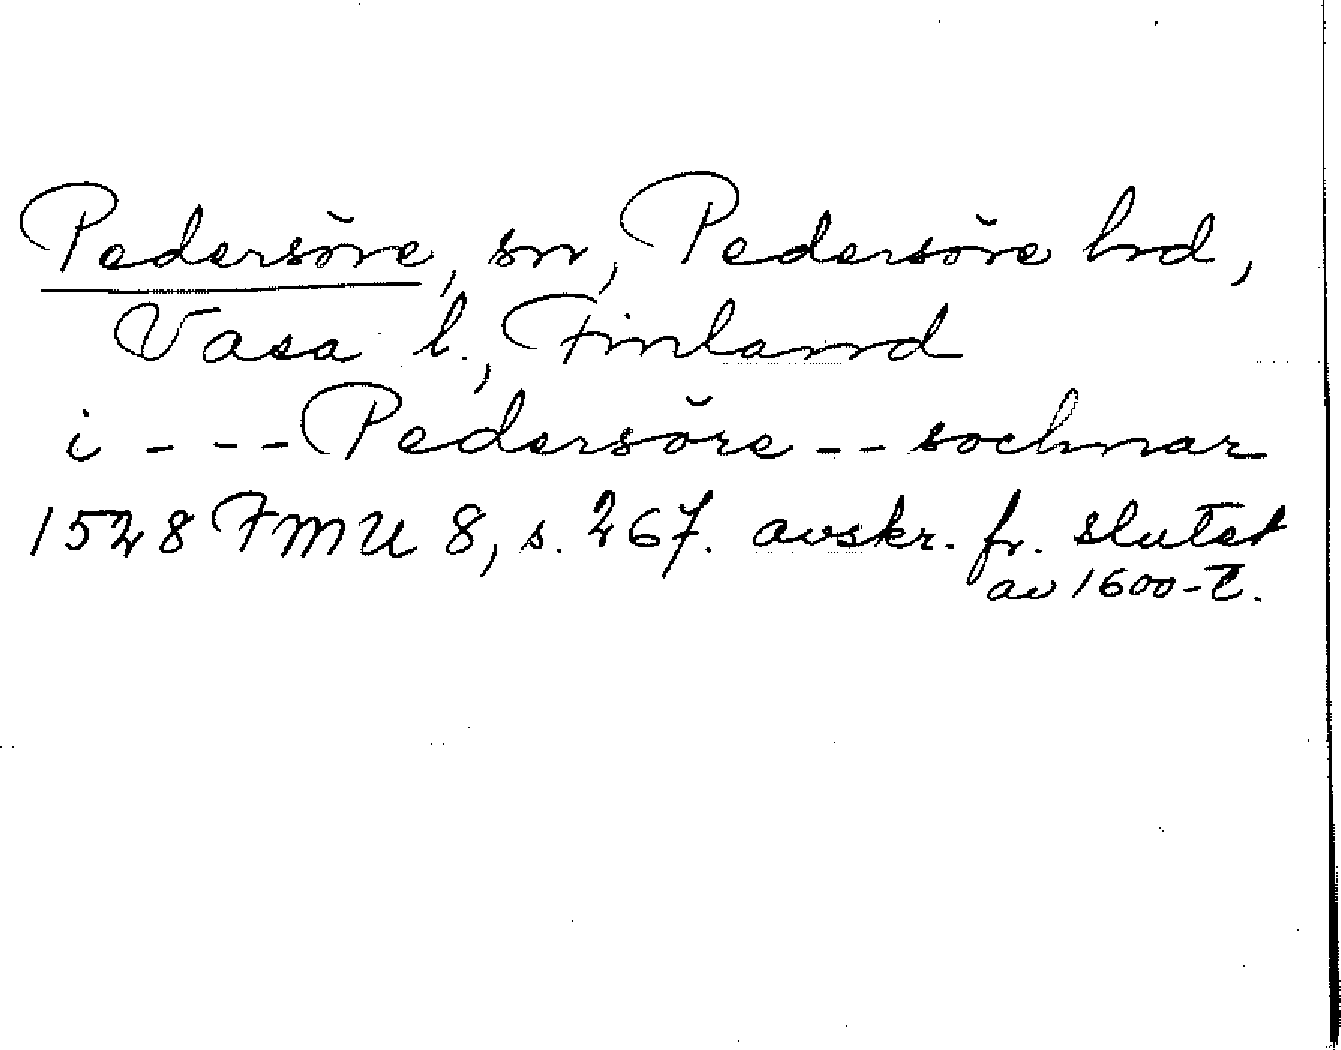 Pedersöre, sn, Pedersöre hrd,
Vasa l., Finland
i - - - Pedersöre - - sochnar
1528 FMU 8, s. 267. avskr. fr. slutet
av 1600-t.